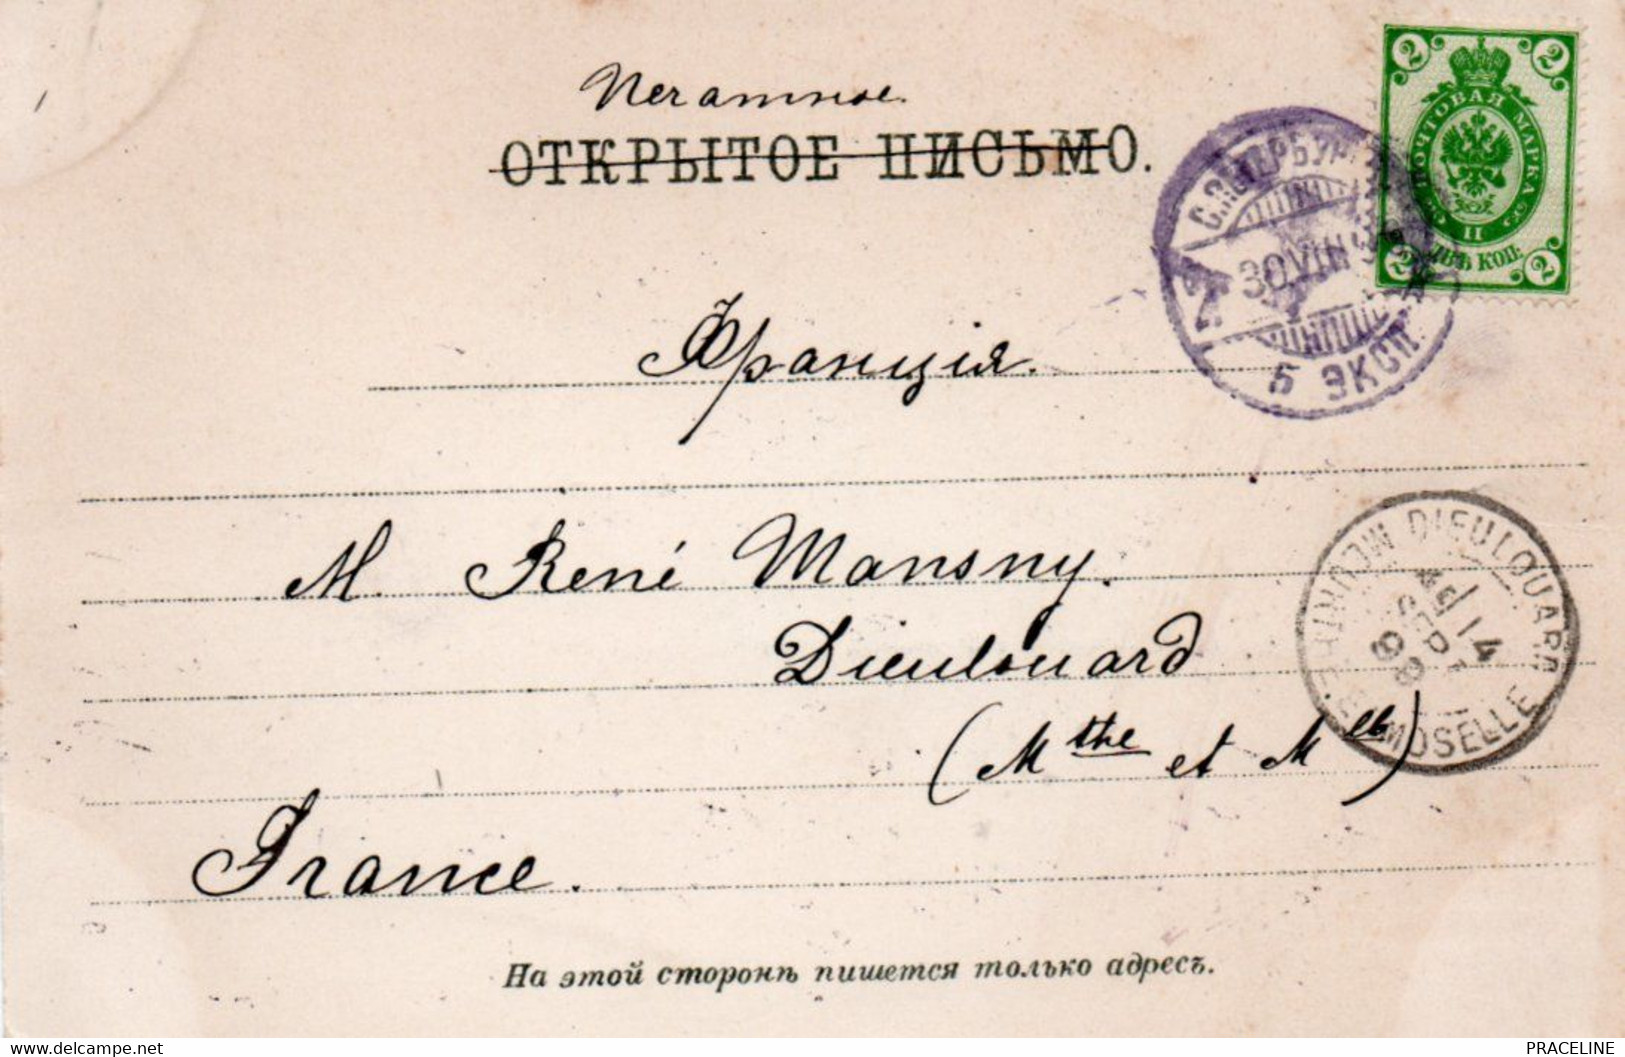 Печатное.
ОТКРЫТОЕ ПИСЬМО.
2 2
ПОЧТОВАЯ МАРКА
II
ДВѢ КОП.
2 2
С.ПЕТЕРБУРГ
30 VIII 9
5 ЭКСП.
Франція.
M. René Mansny.
Dieulouard
(Mthe et Mlle)
France.
DIEULOUARD
MEURTHE-
MOSELLE
98
На этой сторонѣ пишется только адресъ.
delcampe.net
PRACELINE